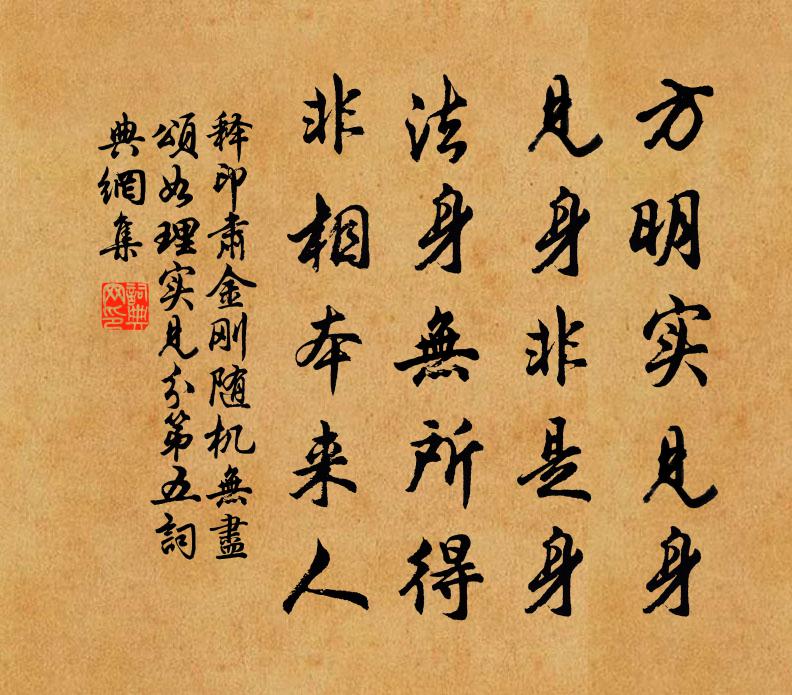 方明实见身
见身非是身
法身無所得
非相本来人
释印肃金刚随机無盡
頌如理实见分第五詞
典網集
詞典网印